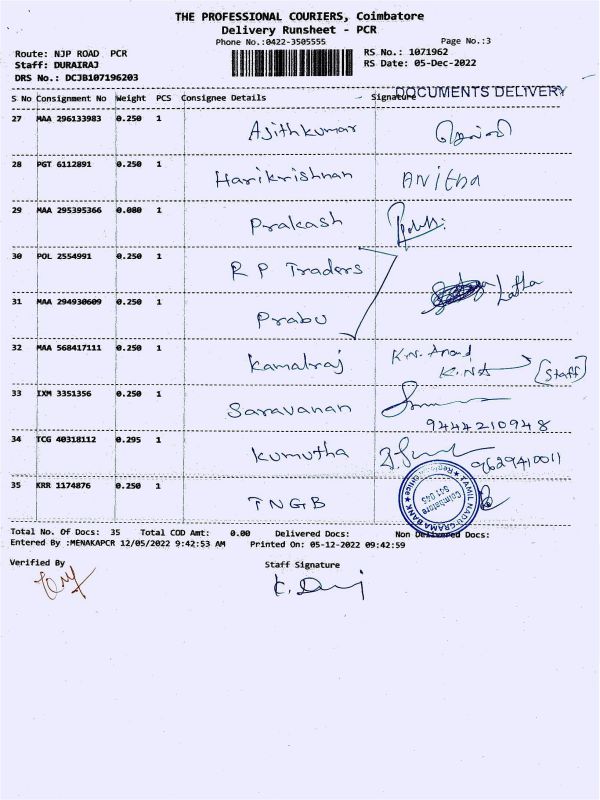 THE PROFESSIONAL COURIERS, Coimbatore
Delivery Runsheet - PCR
Phone No.:0422-3505555 Page No.:3
Route: NJP ROAD PCR RS No.: 1071962
Staff: DURAIRAJ RS Date: 05-Dec-2022
DRS No.: DCJB107196203
DOCUMENTS DELIVERY
S No Consignment No Weight PCS Consignee Details Signature
27 MAA 296133983 0.250 1 Ajithkumar
28 PGT 6112891 0.250 1 Harikrishnan ANitha
29 MAA 295395366 0.080 1 Prakash
30 POL 2554991 0.250 1 R P Traders
Latha
31 MAA 294930609 0.250 1 Prabu
32 MAA 568417111 0.250 1 Kamalraj K.N. Anand
K.NA (Staff)
33 IXM 3351356 0.250 1 Saravanan
9444210948
34 TCG 40318112 0.295 1 Kumutha 9629410011
35 KRR 1174876 0.250 1 TNGB
TAMIL NADU GRAMA BANK
Coimbatore
641 045
Total No. Of Docs: 35 Total COD Amt: 0.00 Delivered Docs: Non Delivered Docs:
Entered By :MENAKAPCR 12/05/2022 9:42:53 AM Printed On: 05-12-2022 09:42:59
Verified By Staff Signature